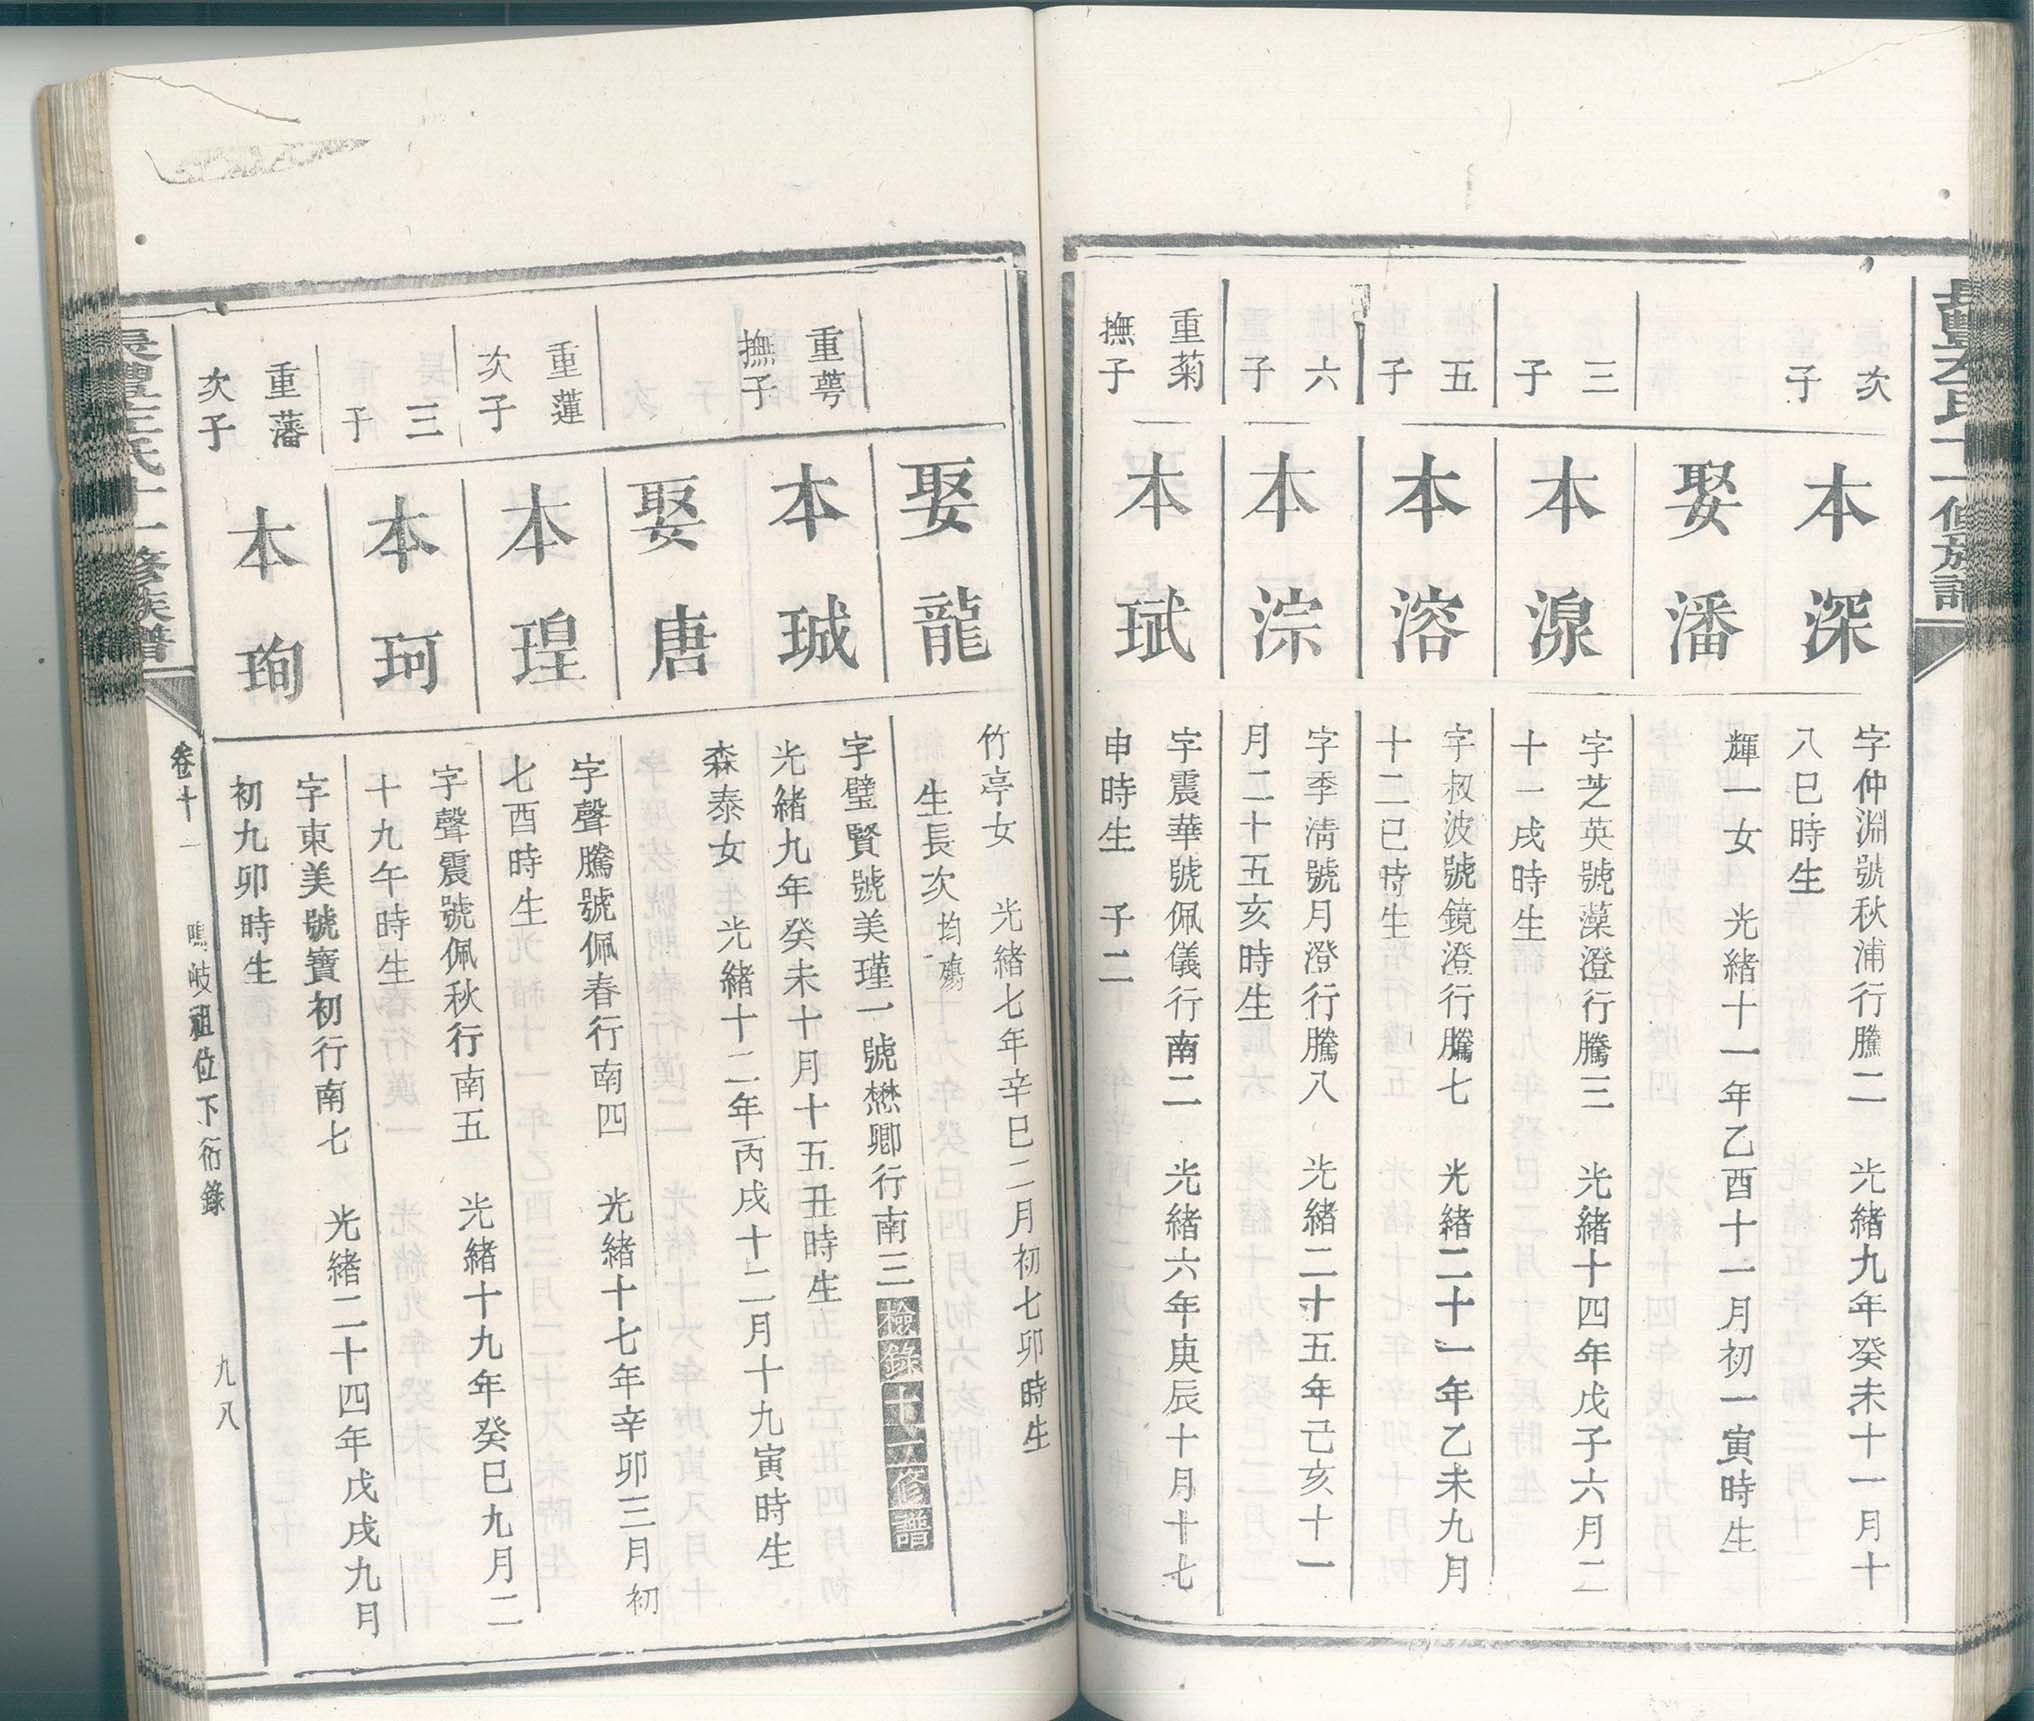 次
子
本深
字仲淵號秋浦行騰二　光緒九年癸未十一月十
八巳時生
娶潘
輝一女　光緒十一年乙酉十一月初一寅時生
三
子
本湶
字芝英號藻澄行騰三　光緒十四年戊子六月二
十一戌時生
五
子
本溶
字叔波號鏡澄行騰七　光緒二十一年乙未九月
十二巳時生
六
子
本淙
字季清號月澄行騰八　光緒二十五年己亥十一
月二十五亥時生
重菊
撫子
本珷
字震華號佩儀行南二　光緒六年庚辰十月十七
申時生　子二
娶龍
竹亭女　光緒七年辛巳二月初七卯時生
生長次均殤
重萼
撫子
本珹
字璧賢號美瑾一號懋卿行南三檢錄十二修譜
光緒九年癸未十月十五丑時生
娶唐
森泰女　光緒十二年丙戌十二月十九寅時生
重蓮
次子
本瑝
字聲騰號佩春行南四　光緒十七年辛卯三月初
七酉時生
三
子
本珂
字聲震號佩秋行南五　光緒十九年癸巳九月二
十九午時生
重藩
次子
本珣
字東美號寶初行南七　光緒二十四年戊戌九月
初九卯時生
卷十一　鳴岐祖位下衍錄　九八